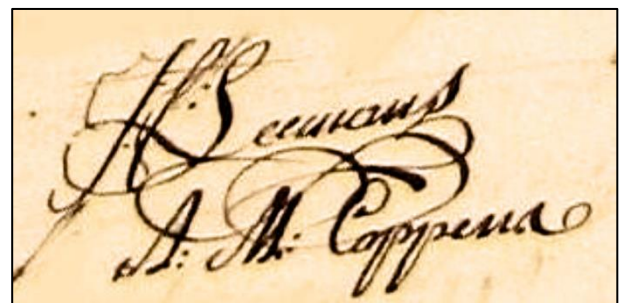 Leemans
A: M: Coppens